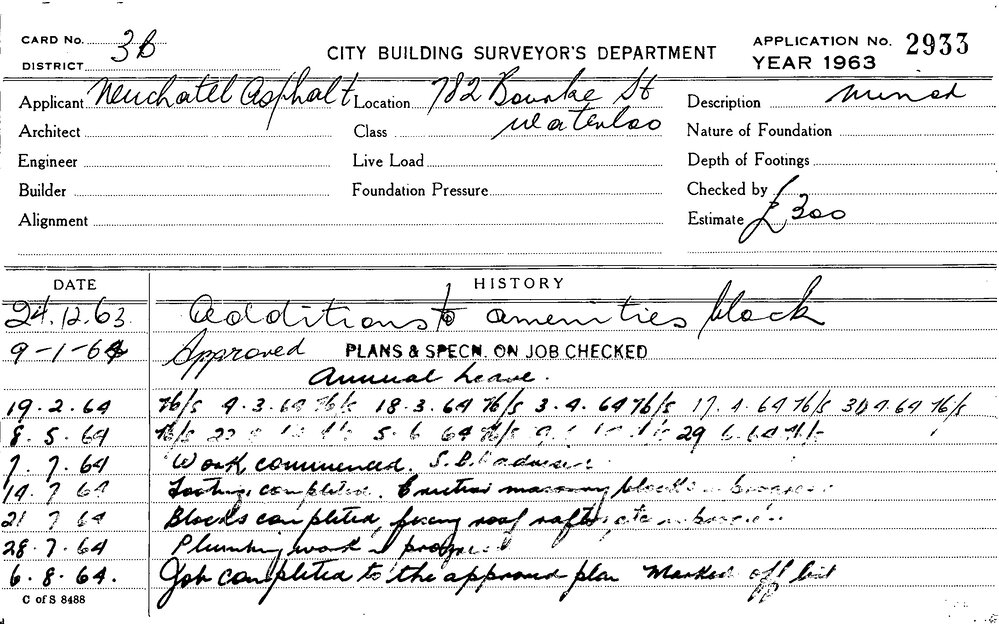 CARD No. 3B
CITY BUILDING SURVEYOR'S DEPARTMENT
APPLICATION No. 2933
DISTRICT
YEAR 1963
Applicant Neuchatel Asphalt Location 782 Bourke St Description minor
Architect Class Waterloo Nature of Foundation
Engineer Live Load Depth of Footings
Builder Foundation Pressure Checked by
Alignment Estimate £300
DATE HISTORY
24.12.63 Additions to amenities block
9-1-64 Approved PLANS & SPECN. ON JOB CHECKED
Annual Leave.
19.2.64 76/s 4.3.64 76/s 18.3.64 76/s 3.4.64 76/s 17.4.64 76/s 30.4.64 76/s
8.5.64 76/s 5.6.64 76/s 29.6.64
7.7.64 Work commenced. S.B.
14.7.64 Footings completed. masonry blocks
21.7.64 Blocks completed, fixing roof rafters etc
28.7.64 Plumbing work in progress
6.8.64. Job completed to the approved plan Marked off list
C of S 8488